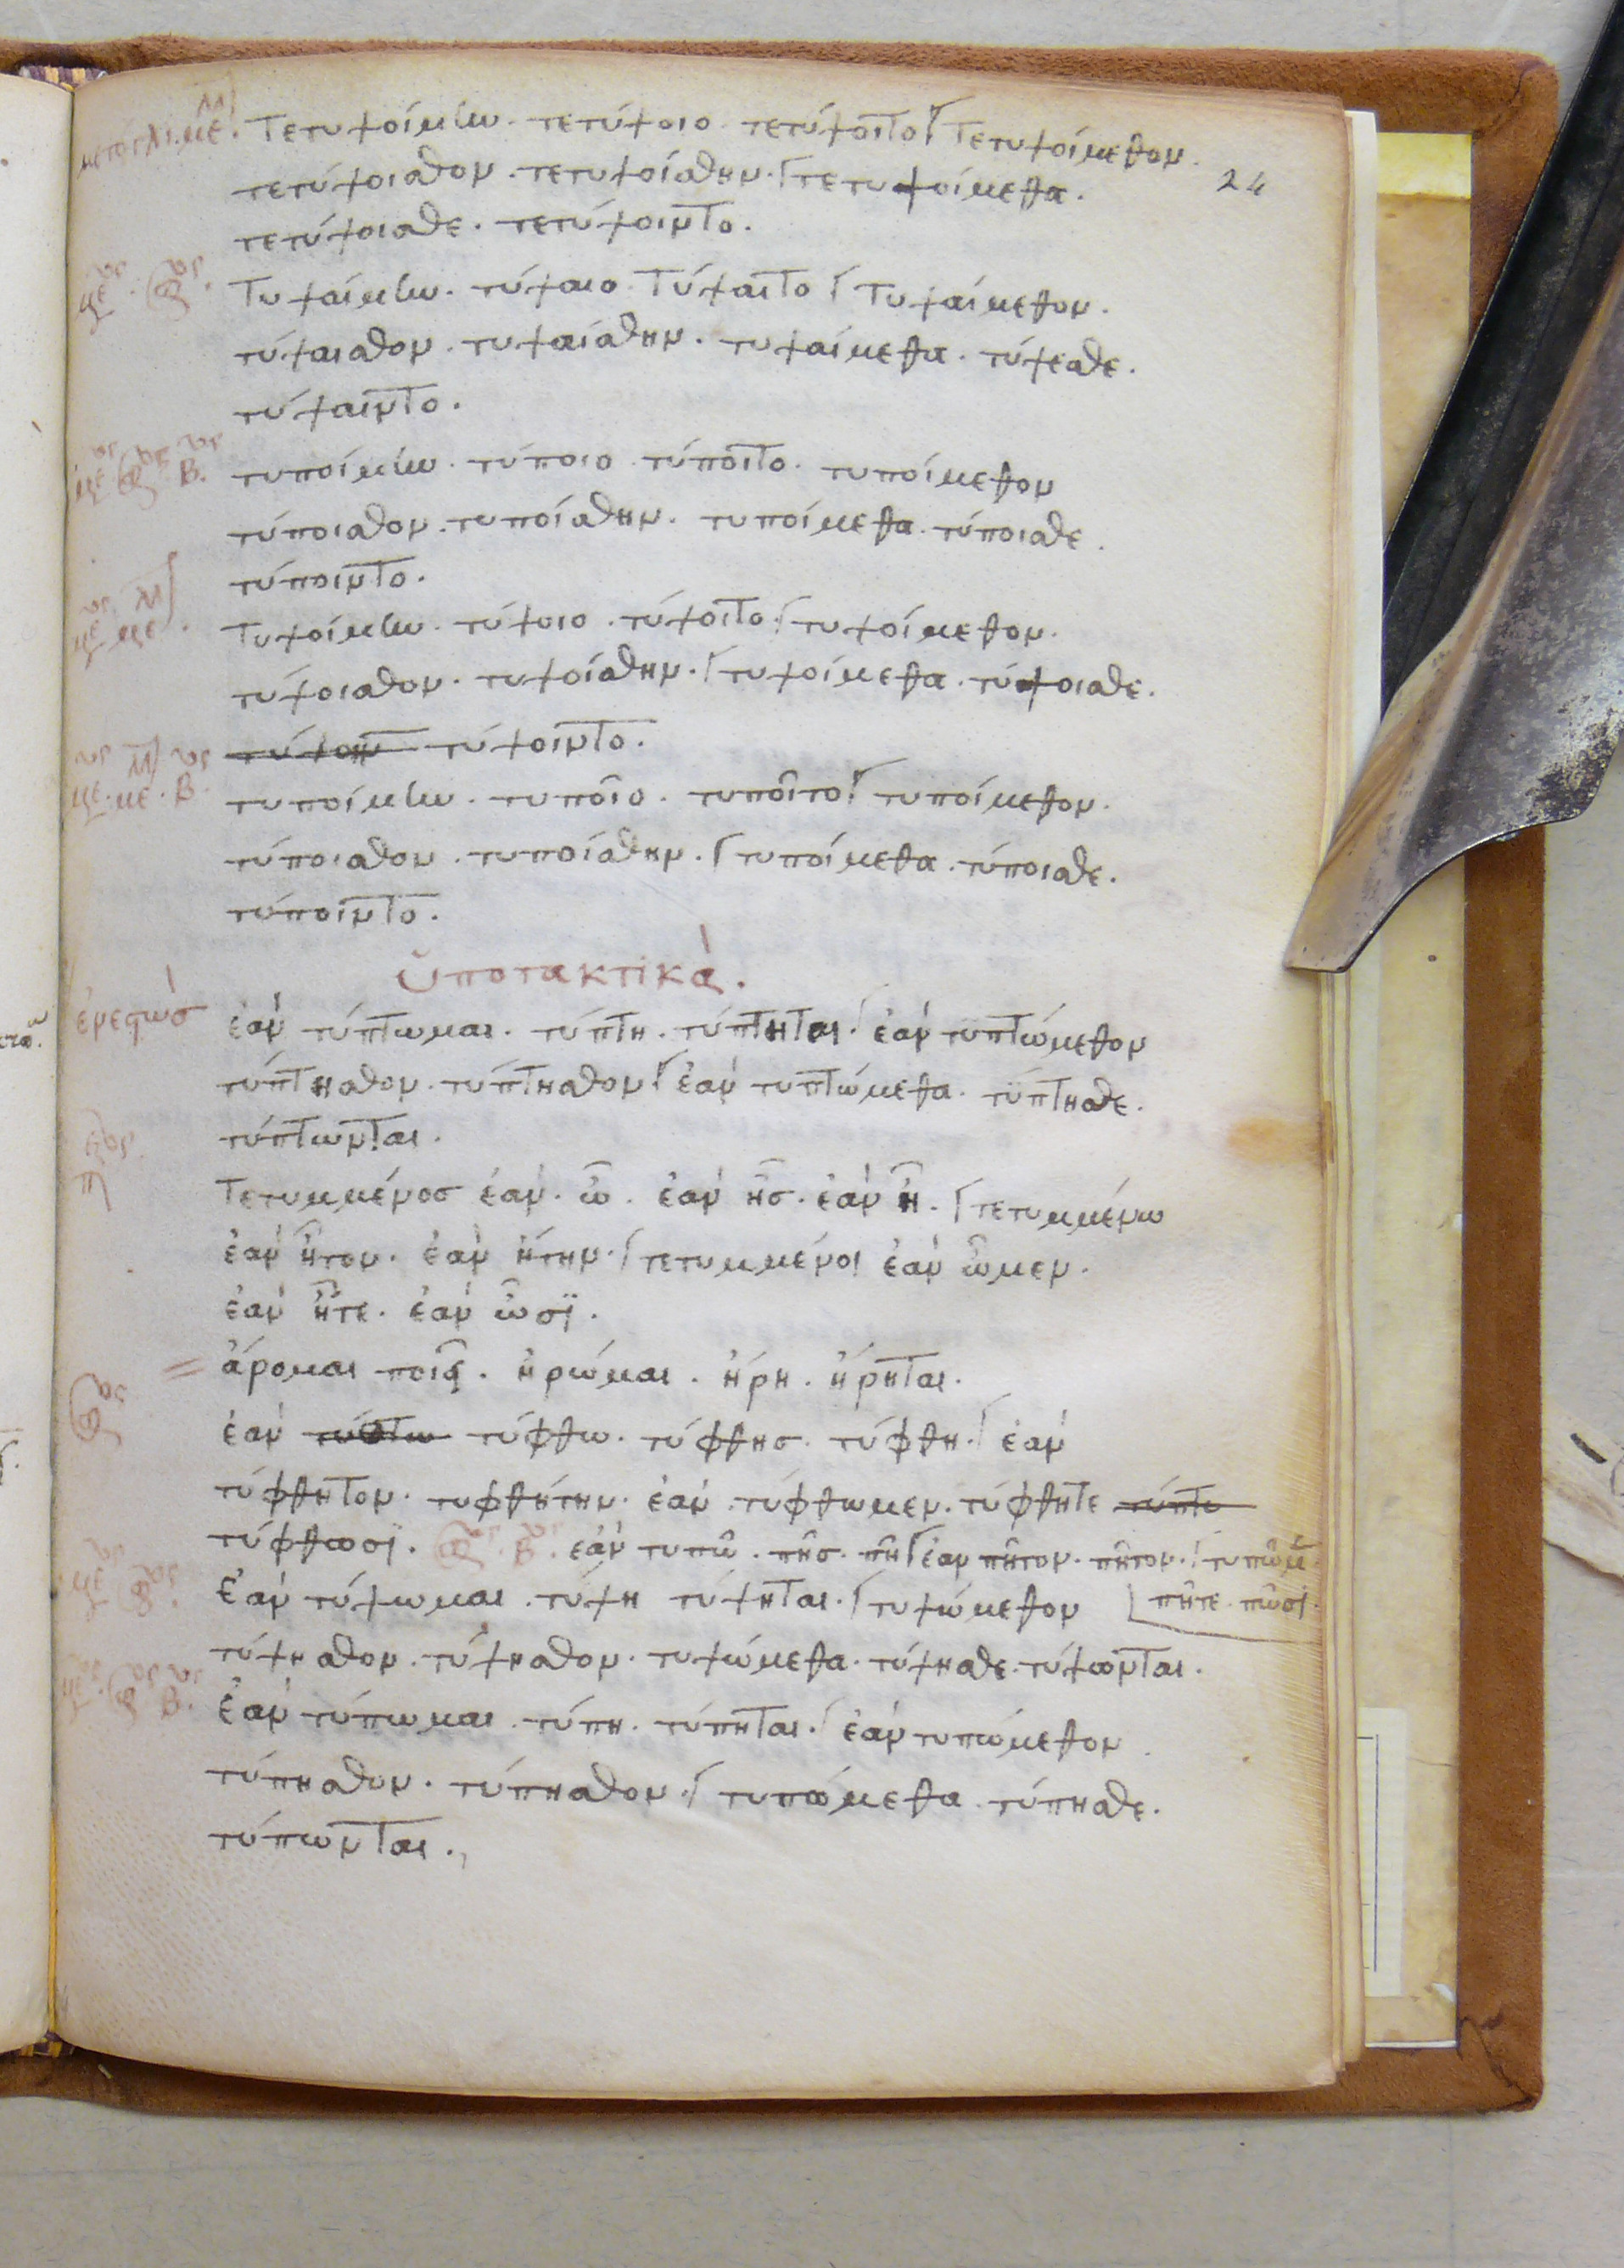 Τετυψοίμην. τετύψοιο. τετύψοιτο / Τετυψοίμεθον.
24
τετύψοισθον. τετυψοίσθην. / τετυψοίμεθα.
τετύψοισθε. τετύψοιντο.
Τυψαίμην. τύψαιο. Τύψαιτο / Τυψαίμεθον.
τύψαισθον. τυψαίσθην. τυψαίμεθα. τύψεσθε.
τύψαιντο.
τυποίμην. τύποιο. τύποιτο. τυποίμεθον
τύποισθον. τυποίσθην. τυποίμεθα. τύποισθε.
τύποιντο.
Τυψοίμην. τύψοιο. τύψοιτο / τυψοίμεθον.
τύψοισθον. τυψοίσθην. / τυψοίμεθα. τύψοισθε.
τύψοιντο.
τυποίμην. τυποῖο. τυποῖτο / τυποίμεθον.
τύποισθον. τυποίσθην. / τυποίμεθα. τύποισθε.
τύποιντο.
ὑποτακτικὰ.
ἐνεστὼσ ἐὰν τύπτωμαι. τύπτη. τύπτηται. / ἐὰν τυπτώμεθον
τύπτησθον. τύπτησθον / ἐὰν τυπτώμεθα. τύπτησθε.
τύπτωνται.
Τετυμμένοσ ἐὰν. ὦ. ἐὰν ἦσ. ἐὰν ἦ. / τετυμμένω
ἐὰν ἦτον. ἐὰν ἤτην. / τετυμμένοι ἐὰν ὦμεν.
ἐὰν ἦτε. ἐὰν ὦσϊ.
ἄρομαι. ἠρώμαι. ἤρη. ἤρηται.
ἐὰν τύφθω. τύφθησ. τύφθη. / ἐὰν
τύφθητον. τυφθήτην. ἐὰν τύφθωμεν. τύφθητε τύπτω
τύφθωσϊ. ἐὰν τυπῶ. πῆσ. πῆ / ἐὰν πῆτον. πῆτον. / τυπῶμεν
πῆτε. πῶσϊ.
Ἐὰν τύψωμαι. τύψη τύψηται. / τυψώμεθον
τύψησθον. τύψησθον. τυψώμεθα. τύψησθε. τύψωνται.
Ἐὰν τύπωμαι. τύπη. τύπηται. / ἐὰν τυπώμεθον.
τύπησθον. τύπησθον. / τυπώμεθα. τύπησθε.
τύπωνται.